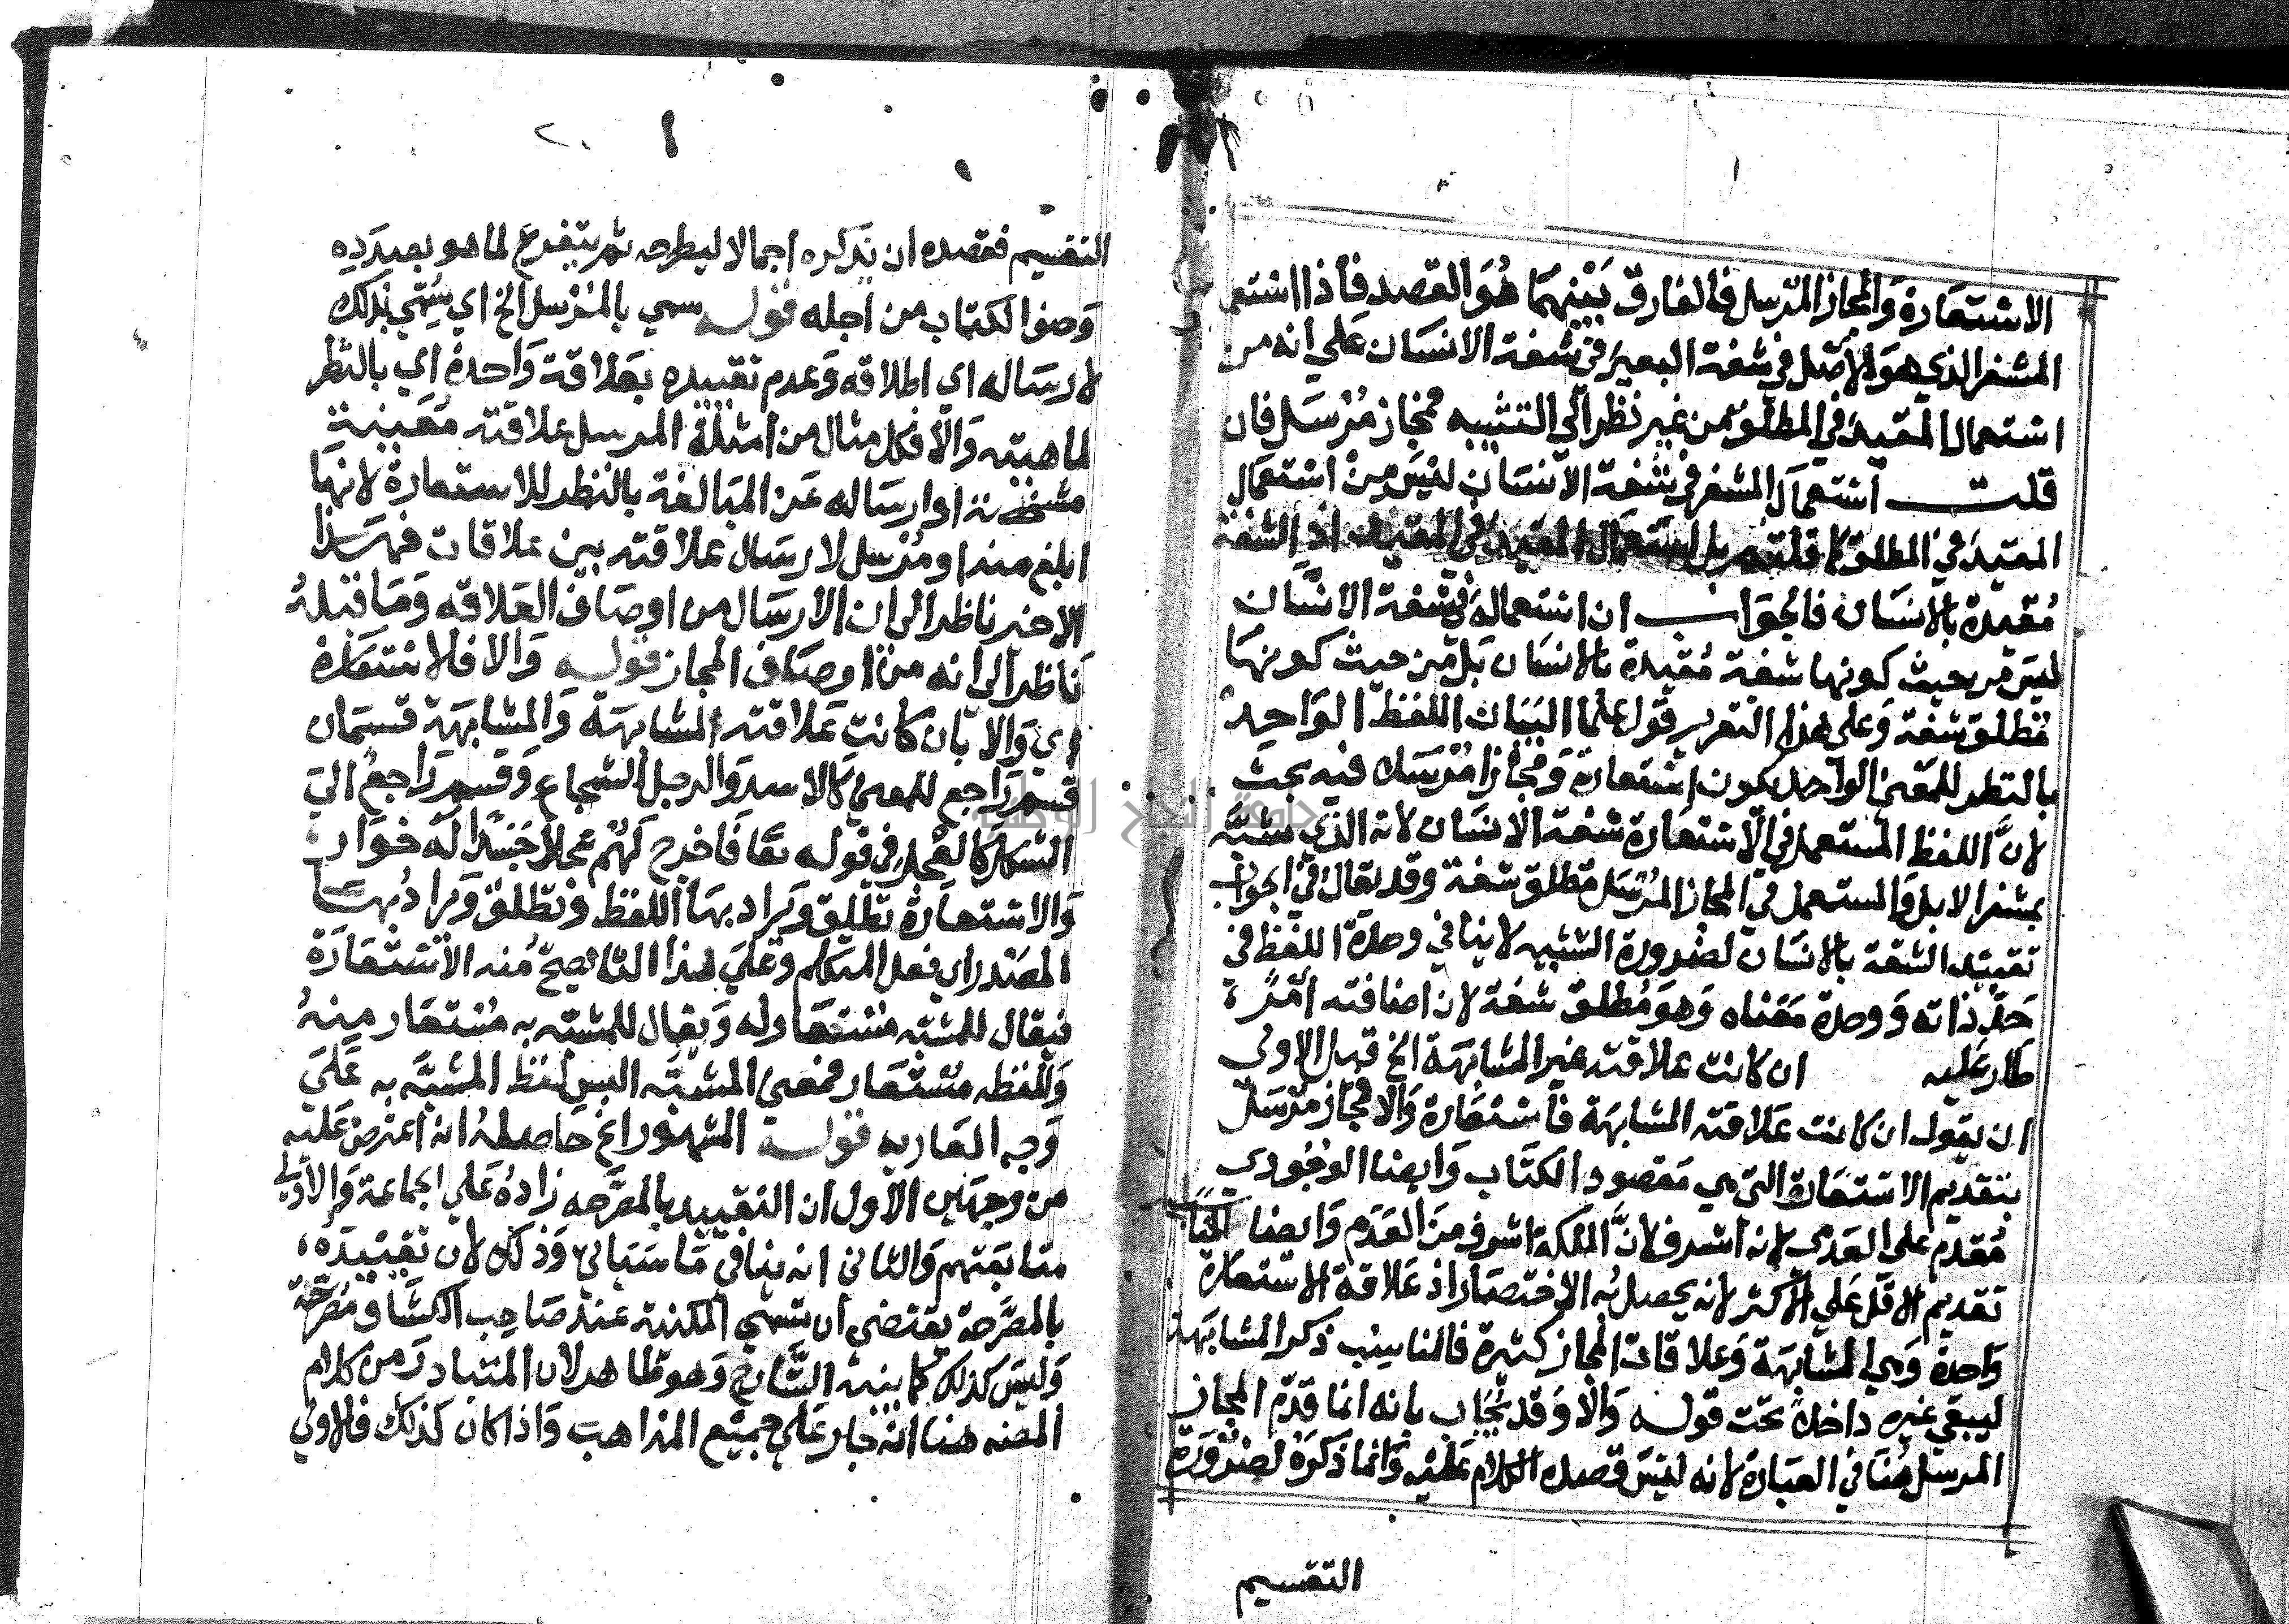 الاستعارة والمجاز المرسل فالفارق بينهما هو القصد فاذا استعمل
المشفر الذي هو الاصل في شفة البعير في شفة الانسان على انه من
استعمال المقيد في المطلق من غير نظر الى التشبيه فمجاز مرسل فان
قلت استعمال المشفر في شفة الانسان ليس من استعمال
المقيد في المطلق كما قلتم بل استعمال المقيد في المقيد اذ الشفة
مقيدة بالانسان فالجواب ان استعماله في شفة الانسان
ليس من حيث كونها شفة مقيدة بالانسان بل من حيث كونها
مطلق شفة وعلى هذا التقرير فقول علما البيان اللفظ الواحد
بالنظر للمعنى الواحد يكون استعارة ومجازا مرسلا فيه بحث
لان اللفظ المستعمل في الاستعارة شفة الانسان لانه الذي شبه
بمشفر الابل والمستعمل في المجاز المرسل مطلق شفة وقد يقال في الجواب
تقييد الشفة بالانسان لضرورة التشبيه لا ينافي وحدة اللفظ في
حد ذاته ووحدة معناه وهو مطلق شفة لان اضافته امر
طار عليه ان كانت علاقته غير المشابهة الخ قيل الاولى
ان يقول ان كانت علاقته المشابهة فاستعارة والا فمجاز مرسل
بتقديم الاستعارة التي هي مقصود الكتاب وايضا الوجودي
مقدم على العدمي لانه اشرف لان الملكة اشرف من العدم وايضا
تقديم الاقل على الاكثر لانه يحصل به الاختصار اذ علاقة الاستعارة
واحدة وهي المشابهة وعلاقات المجاز كثيرة فالمناسب ذكر المشابهة
ليبقى غيره داخلا تحت قوله والا وقد يجاب بانه انما قدم المجاز
المرسل هنا في العبارة لانه ليس قصده الكلام عليه وانما ذكره لضرورة
التقسيم
٢٠
التقسيم فقصده ان يذكره اجمالا ليطرحه ثم يتفرغ لما هو بصدده
وضع الكتاب من اجله قوله سمي بالمرسل الخ اي سمي بذلك
لارساله اي اطلاقه وعدم تقييده بعلاقة واحدة اي بالنظر
لماهيته والا فكل مثال من امثلة المرسل علاقته معينة
مشخصة او ارساله عن المبالغة بالنظر للاستعارة لانها
ابلغ منه او مرسل لارسال علاقته بين علاقات فهذا
الاخير ناظر الى ان الارسال من اوصاف العلاقة وما قبله
ناظر الى انه من اوصاف المجاز قوله والا فالاستعارة
اي والا بان كانت علاقته المشابهة والمشابهة قسمان
قسم راجع للمعنى كالاسد والرجل الشجاع وقسم راجع الى
الشكل كالعجل في قوله تعا فاخرج لهم عجلا جسدا له خوار
والاستعارة تطلق ويراد بها اللفظ وتطلق ويراد بها
المصدر اي فعل المتكلم وعلى هذا الثا يصح منه الاستعارة
فيقال للمشبه مستعار له ويقال للمشبه به مستعار منه
واللفظه مستعار فمعنى المشبه البس لفظ المشبه به على
وجه العارية قوله المشهور الخ حاصله انه اعترض عليه
من وجهين الاول ان التقييد بالمصرحه زاده على الجماعة والاولى
متابعتهم والثاني انه ينافي ما سياتي وذلك لان تقييده
بالمصرحة يقتضى ان تسمى المكنية عند صاحب الكشاف مصرحة
وليس كذلك كما بينه الشارح وهو ظاهر لان المتبادر من كلام
المصنه هنا انه جار على جميع المذاهب واذا كان كذلك فالاولى
جامعة النجاح الوطنية